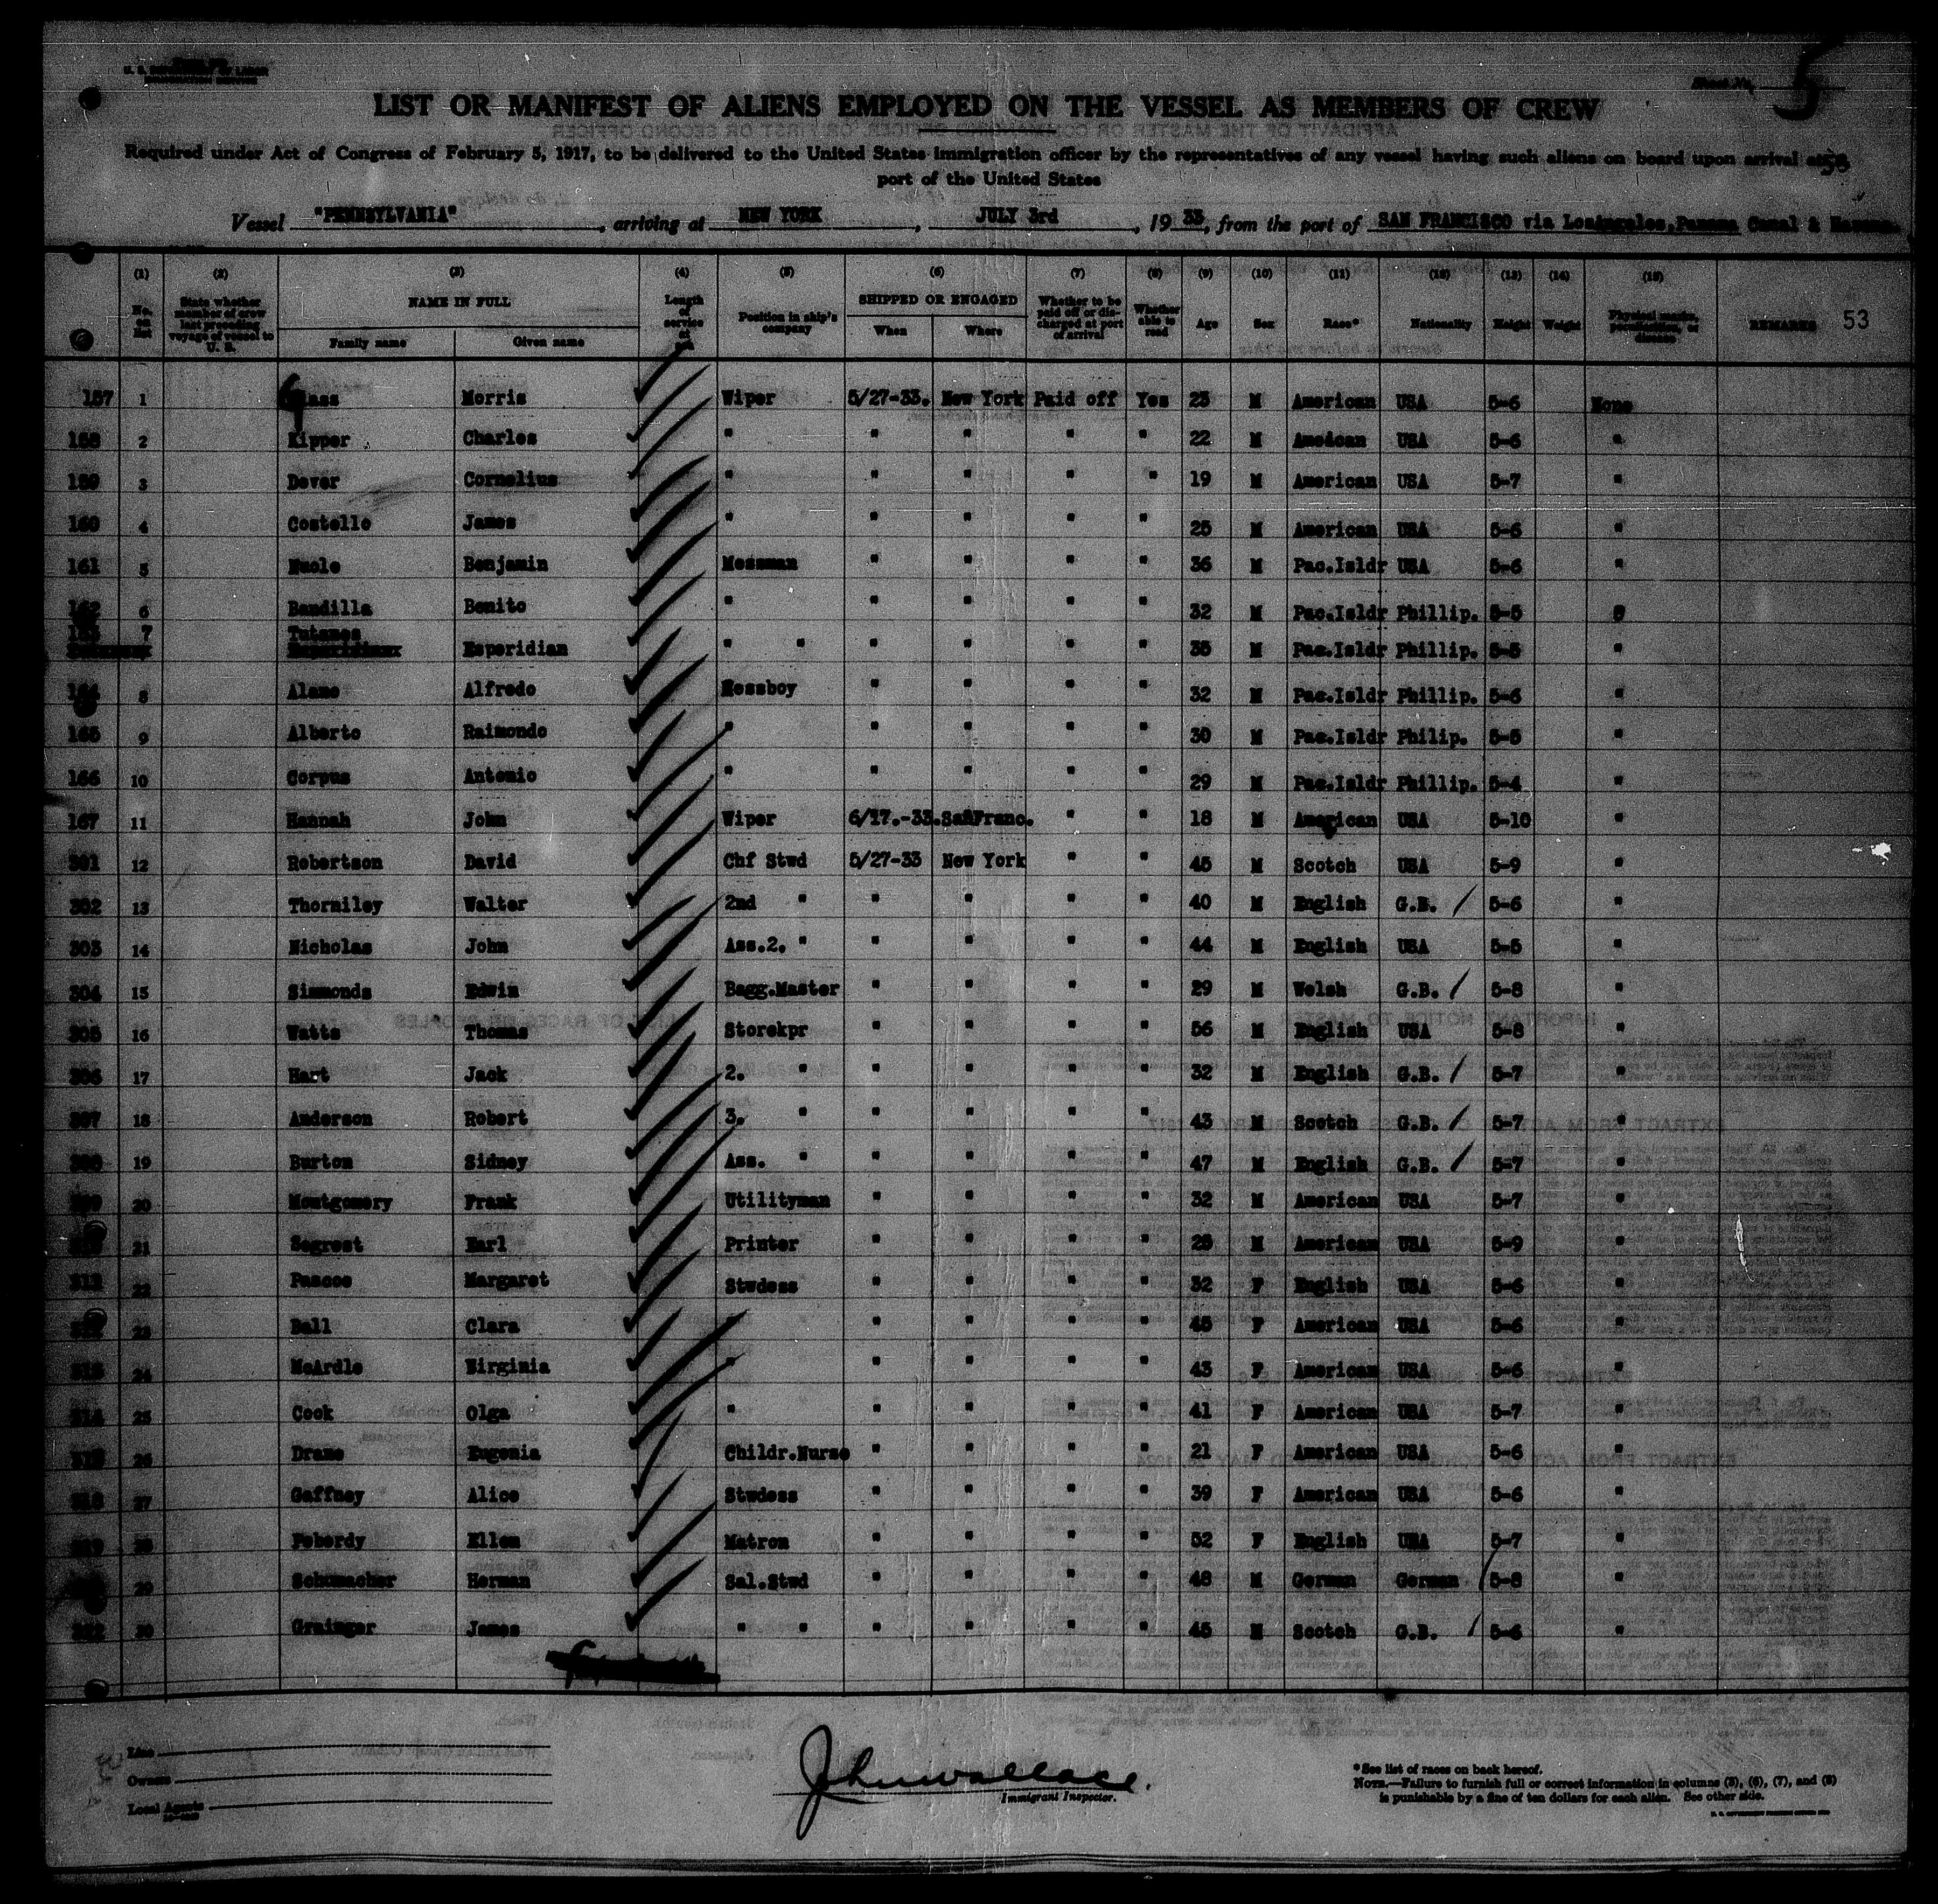 U. S. DEPARTMENT OF LABOR
Sheet No. 5
LIST OR MANIFEST OF ALIENS EMPLOYED ON THE VESSEL AS MEMBERS OF CREW
Required under Act of Congress of February 5, 1917, to be delivered to the United States immigration officer by the representatives of any vessel having such aliens on board upon arrival at a
port of the United States
Vessel "PENNSYLVANIA", arriving at NEW YORK, JULY 3rd, 1933, from the port of SAN FRANCISCO via Losangeles, Panama Canal & Havana.
(1) (2) (3) (4) (5) (6) (7) (8) (9) (10) (11) (12) (13) (14) (15)
No. on list State whether member of crew last preceding voyage of vessel to U. S. NAME IN FULL Family name Given name Length of service at sea Position in ship's company SHIPPED OR ENGAGED When Where Whether to be paid off or discharged at port of arrival Whether able to read Age Sex Race* Nationality Height Weight Physical marks, peculiarities, or disease REMARKS 53
157 1 Glass Morris Wiper 5/27-33. New York Paid off Yes 23 M American USA 5-6 None
158 2 Kipper Charles " " " " " 22 M Ameican USA 5-6 "
159 3 Dever Cornelius " " " " " 19 M American USA 5-7 "
160 4 Costello James " " " " " 25 M American USA 5-6 "
161 5 Nuole Benjamin Messman " " " " 36 M Pac.Isldr USA 5-6 "
162 6 Bandilla Benito " " " " " 32 M Pac.Isldr Phillip. 5-5 "
163 7 Tutanes Esperidian " " " " " " 35 M Pac.Isldr Phillip. 5-5 "
164 8 Alamo Alfredo Messboy " " " " 32 M Pac.Isldr Phillip. 5-6 "
165 9 Alberto Raimondo " " " " " 30 M Pac.Isldr Philip. 5-5 "
166 10 Corpus Antonio " " " " " 29 M Pac.Isldr Phillip. 5-4 "
167 11 Hannah John Wiper 6/17.-33. SanFranc. " " 18 M American USA 5-10
301 12 Robertson David Chf Stwd 5/27-33 New York " " 45 M Scotch USA 5-9 "
302 13 Thorniley Walter 2nd " " " " " 40 M English G.B. 5-6 "
303 14 Nicholas John Ass.2. " " " " " 44 M English USA 5-5 "
304 15 Simmonds Edwin Bagg.Master " " " " 29 M Welsh G.B. 5-8 "
305 16 Watts Thomas Storekpr " " " " 56 M English USA 5-8 "
306 17 Hart Jack 2. " " " " " 32 M English G.B. 5-7 "
307 18 Anderson Robert 3. " " " " " 43 M Scotch G.B. 5-7 "
308 19 Burton Sidney Ass. " " " " " 47 M English G.B. 5-7 "
309 20 Montgomery Frank Utilityman " " " " 32 M American USA 5-7 "
21 Segrest Earl Printer " " " " 25 M American USA 5-9 "
22 Pascoe Margaret Stwdess " " " " 32 F English USA 5-6 "
23 Ball Clara " " " " " 45 F American USA 5-6 "
24 McArdle Virginia " " " " " 43 F American USA 5-6 "
25 Cook Olga " " " " " 41 F American USA 5-7 "
26 Drame Eugenia Childr.Nurse " " " " 21 F American USA 5-6 "
27 Gaffney Alice Stwdess " " " " 39 F American USA 5-6 "
28 Peberdy Ellen Matron " " " " 52 F English USA 5-7 "
29 Schumacher Herman Sal.Stwd " " " " 48 M German German 5-8 "
30 Grainger James " " " " " " 45 M Scotch G.B. 5-6 "
Line
Owners
Local Agents
John Wallace.
Immigrant Inspector.
*See list of races on back hereof.
NOTE.—Failure to furnish full or correct information in columns (3), (6), (7), and (8)
is punishable by a fine of ten dollars for each alien. See other side.